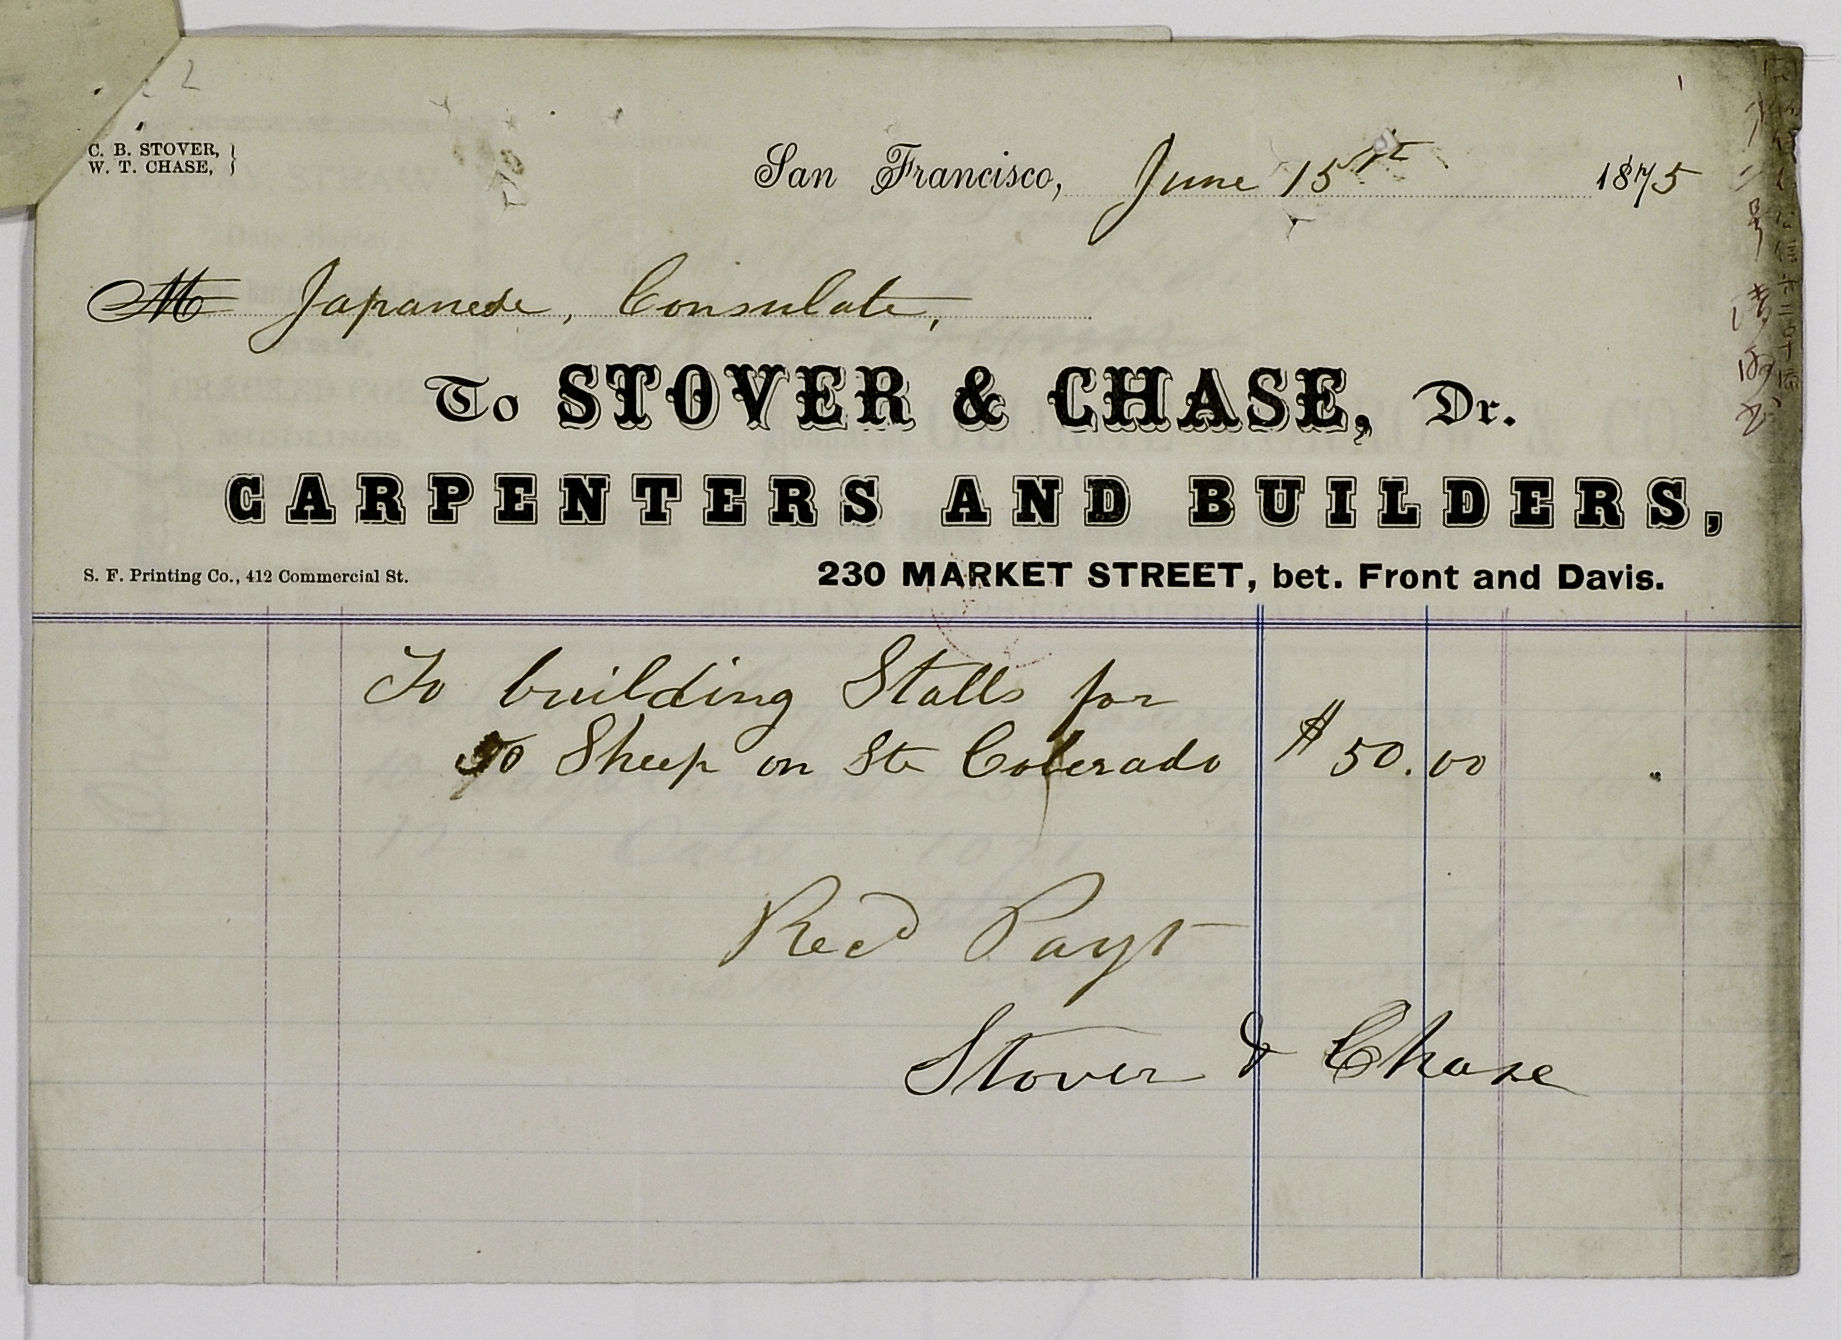 C. B. STOVER,
W. T. CHASE,
San Francisco, June 15st 1875
M Japanese, Consulate,
To STOVER & CHASE, Dr.
CARPENTERS AND BUILDERS,
S. F. Printing Co., 412 Commercial St.
230 MARKET STREET, bet. Front and Davis.
To building Stalls for
Sheep on St Colerado $ 50.00
Recd Payt
Stover & Chase